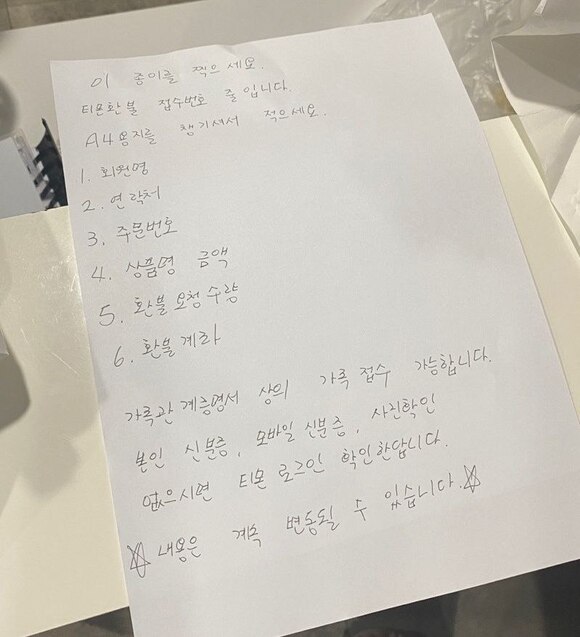 이 종이를 찍으세요.
티몬환불 접수번호 줄입니다.
A4용지를 챙기셔서 적으세요.
1. 회원명
2. 연락처
3. 주문번호
4. 상품명 금액
5. 환불요청수량
6. 환불계좌
가족관계증명서 상의 가족 접수 가능합니다.
본인 신분증, 모바일 신분증, 사진확인
없으시면 티몬 로그인 확인한답니다.
☆ 내용은 계속 변동될 수 있습니다.☆